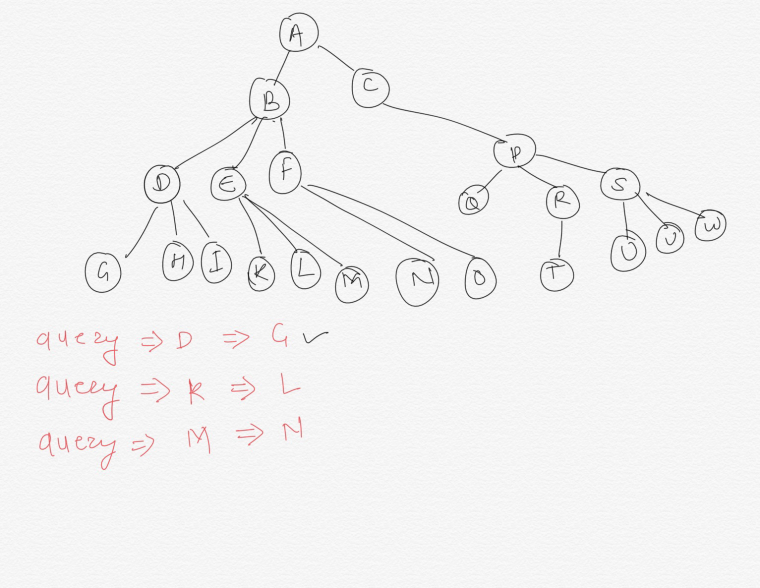 A
B C
D E F P
Q R S
G H I K L M N O T U U W
query ⇒ D ⇒ G ✓
query ⇒ K ⇒ L
query ⇒ M ⇒ N